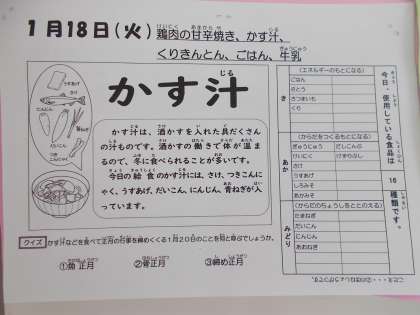 1月18日(火) 鶏肉の甘辛焼き、かす汁、
くりきんとん、ごはん、牛乳
かす汁
うすあげ
さけ
にんじん
青ねぎ
だいこん
つき
こんにゃく
かす汁は、酒かすを入れた具だくさん
の汁ものです。酒かすの働きで体が温ま
るので、冬に食べられることが多いです。
今日の給食のかす汁には、さけ、つきこんに
ゃく、うすあげ、だいこん、にんじん、青ねぎが入
っています。
クイズ かす汁などを食べて正月の行事を締めくくる1月20日のことを何と呼ぶでしょうか。
①魚正月
②骨正月
③締め正月
今日、使用している食品は 16 種類です。
き
(エネルギーのもとになる)
ごはん
さとう
さつまいも
くり
あか
(からだをつくるもとになる)
けいにく
さけ
うすあげ
しろみそ
あかみそ
だしこんぶ
けずりぶし
みどり
(からだのちょうしをととのえる)
たまねぎ
だいこん
にんじん
あおねぎ